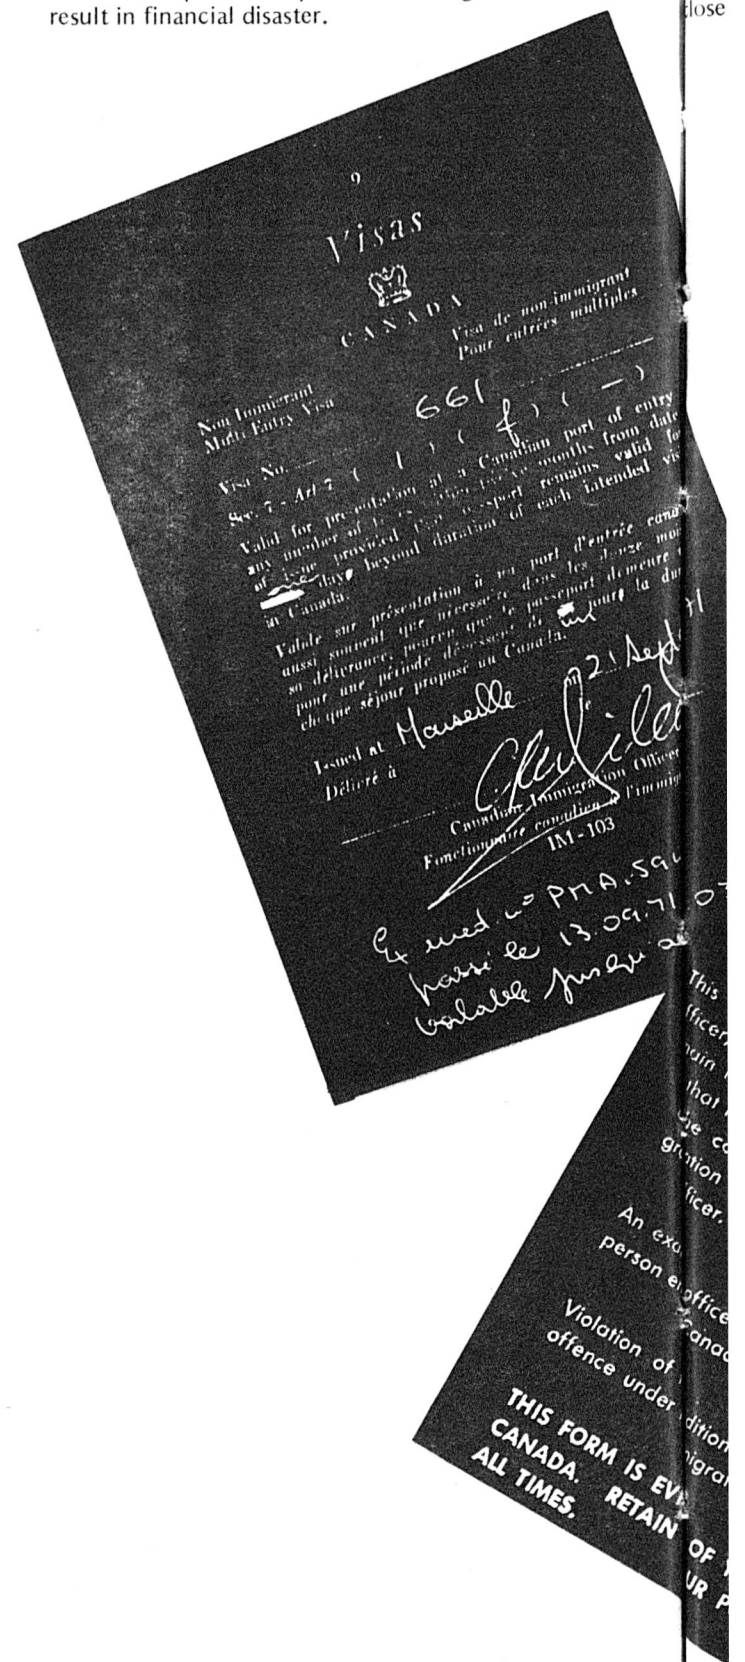 result in financial disaster.
close
9
Visas
CANADA
Visa de non-immigrant
Pour entrées multiples
Non Immigrant
Multi Entry Visa
661
Visa No.
Sec. 7 - Art 7 ( 1 ) ( f ) ( — )
Valid for presentation at a Canadian port of entry
any number of times within twelve months from date
of issue provided that passport remains valid for
one day beyond duration of each intended vis
in Canada.
Valide sur présentation à un port d'entrée cana
aussi souvent que nécessaire dans les douze moi
sa délivrance, pourvu que le passeport demeure
pour une période dépassant de un jour la dur
chaque séjour proposé au Canada.
Issued at Marseille on 21 Sept 71
Délivré à le
Canadian Immigration Officer
Fonctionnaire canadien à l'immigr
IM-103
Ex med. nº PMA.594
passé le 13.09.71
valable jusqu'au
This
fficer,
main
that
he co
gration
ficer.
An exa
person e office
Canad
Violation of
offence under dition
migra
THIS FORM IS EVI
CANADA. RETAIN OF
ALL TIMES. UR P